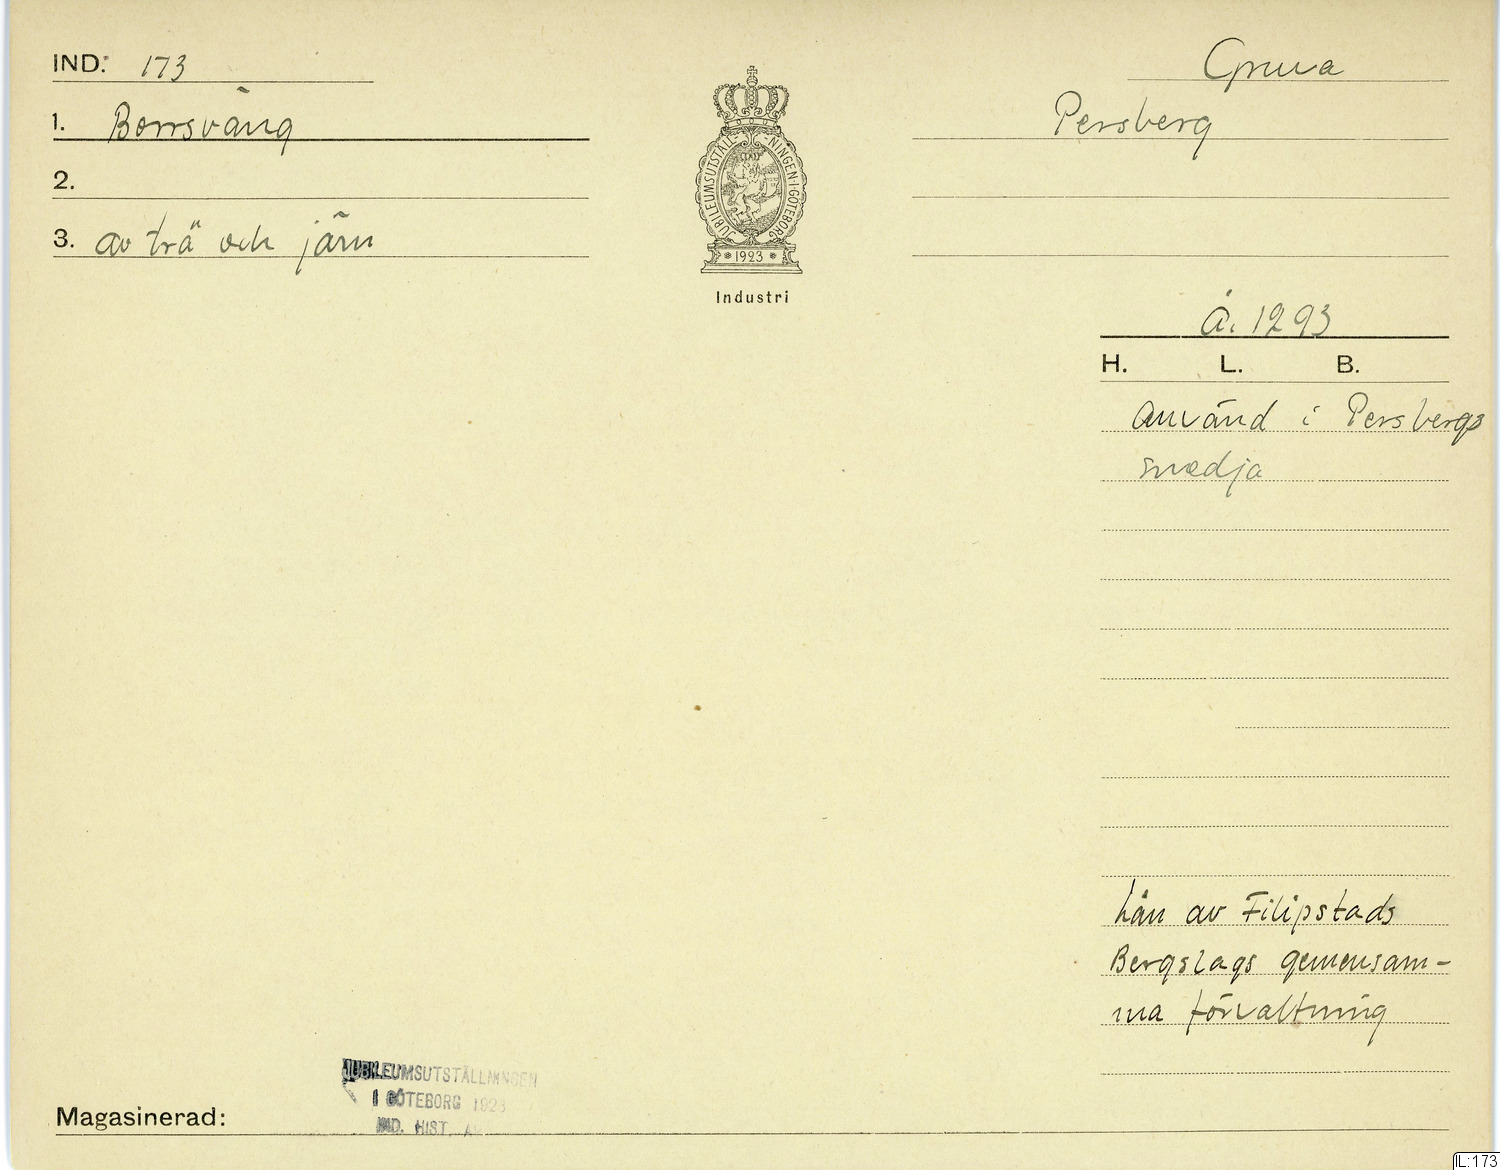 IND: 173
Gruva
1. Borrsväng
Persberg
2.
3. av trä och järn
JUBILEUMSUTSTÄLL-NINGEN·I·GÖTEBORG
1923
Industri
Å. 1293
H. L. B.
Använd i Persbergs
smedja
Lån av Filipstads
Bergslags gemensam-
ma förvaltning
JUBILEUMSUTSTÄLLNINGEN
I GÖTEBORG 1923
IND. HIST.
Magasinerad:
IL:173